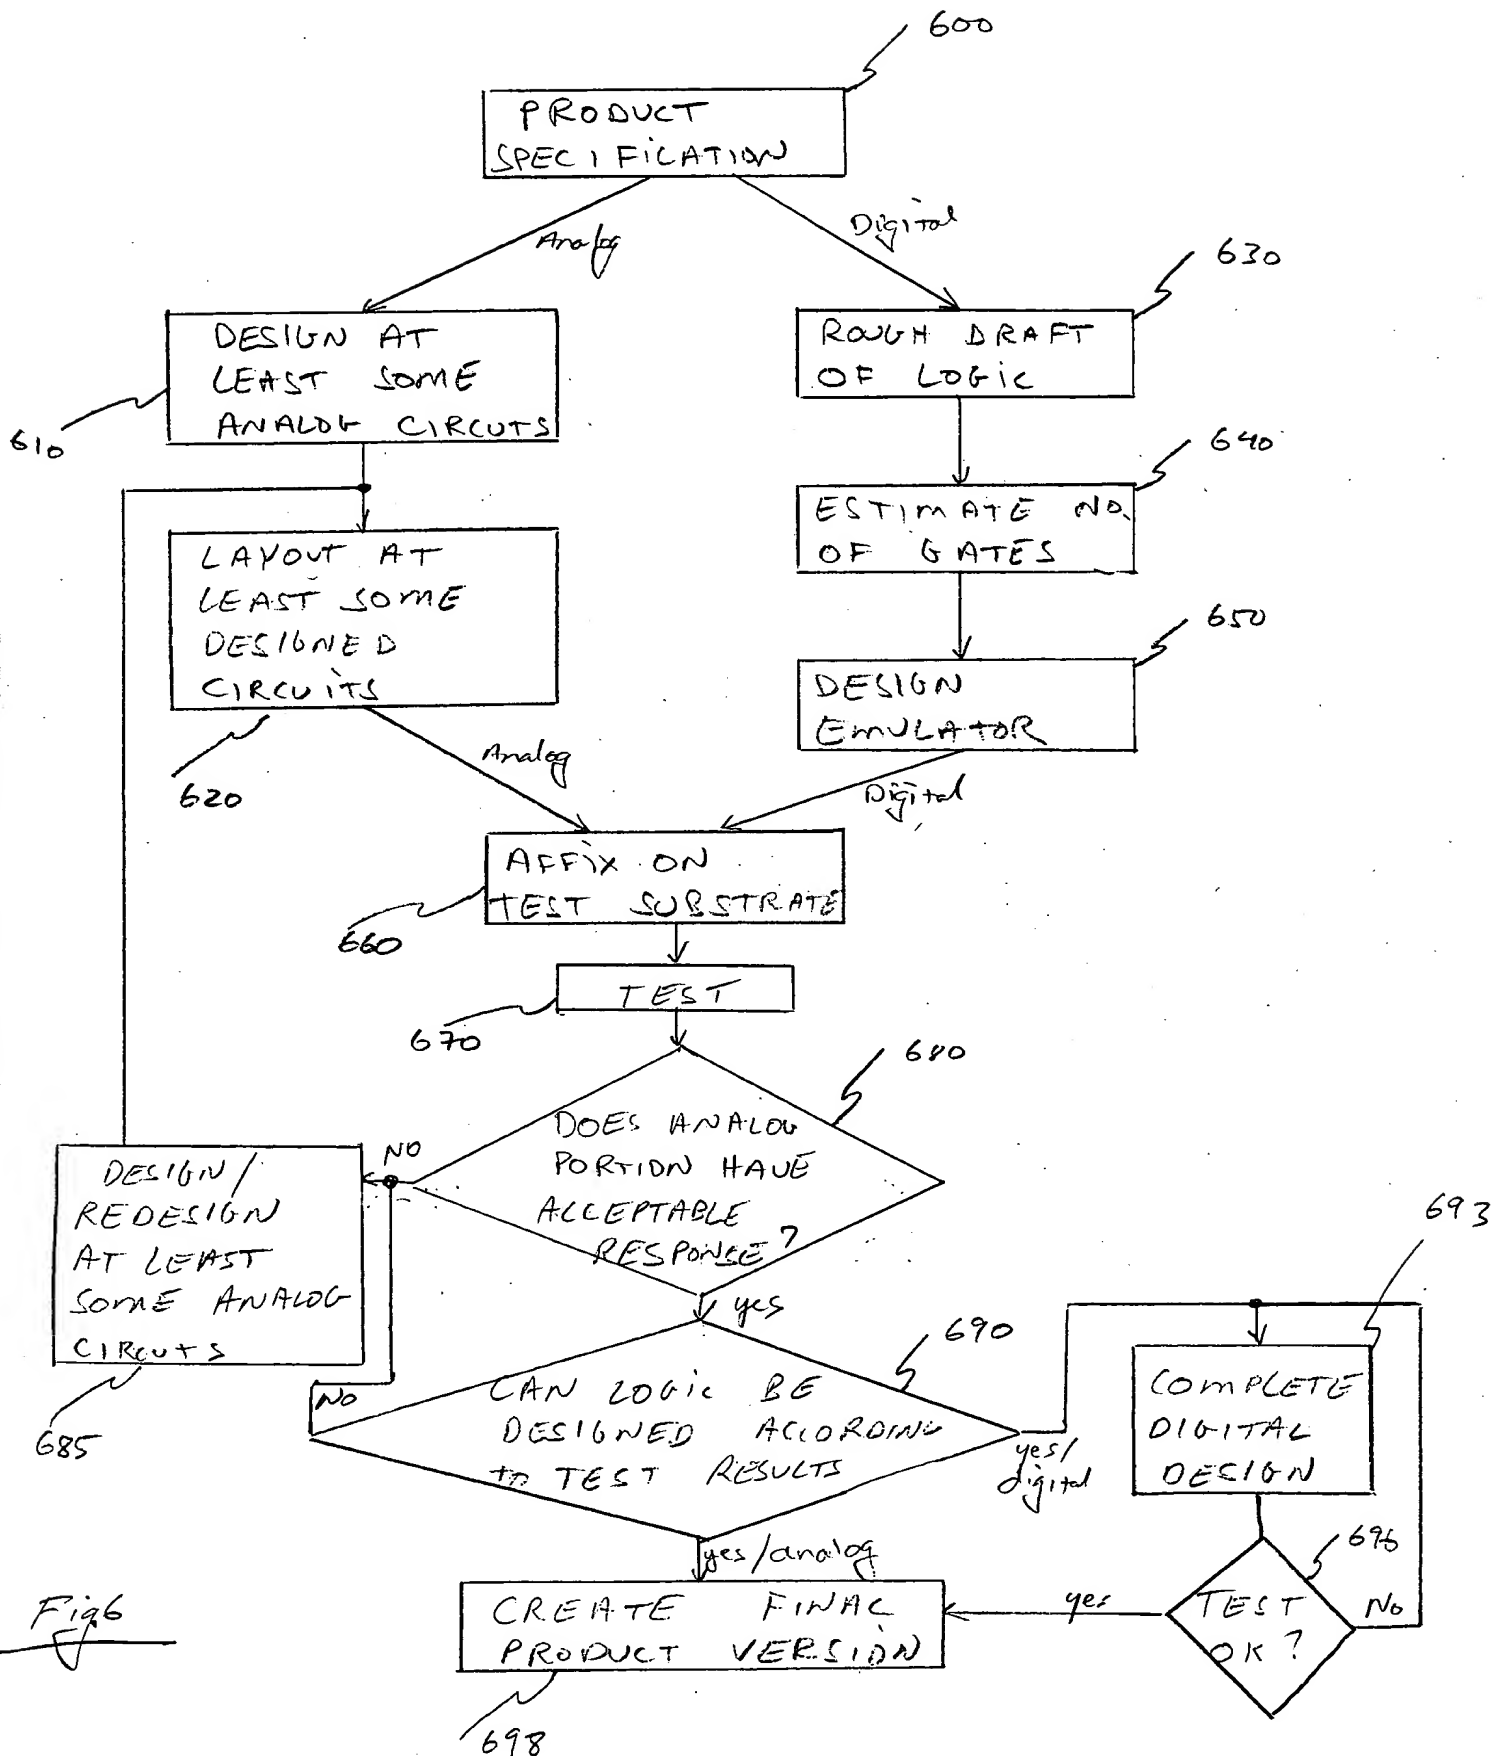 600
PRODUCT
SPECIFICATION
Analog
Digital
630
DESIGN AT
LEAST SOME
ANALOG CIRCUTS
610
ROUGH DRAFT
OF LOGIC
640
ESTIMATE NO.
OF GATES
LAYOUT AT
LEAST SOME
DESIGNED
CIRCUITS
620
650
DESIGN
EMULATOR
Analog
Digital
AFFIX ON
TEST SUBSTRATE
660
TEST
670
680
DOES ANALOG
PORTION HAVE
ACCEPTABLE
RESPONSE?
NO
DESIGN/
REDESIGN
AT LEAST
SOME ANALOG
CIRCUTS
685
yes
690
CAN LOGIC BE
DESIGNED ACCORDING
to TEST RESULTS
NO
yes/
digital
693
COMPLETE
DIGITAL
DESIGN
yes/analog
696
TEST
OK?
yes
No
CREATE FINAL
PRODUCT VERSION
698
Fig6